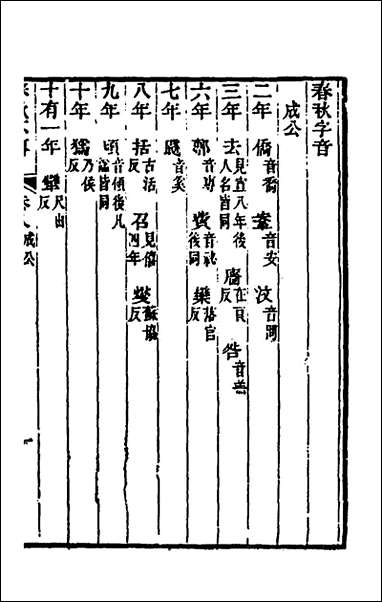 春秋字音
成公
二年 僑音喬 鞌音安 汶音問
三年 去見宣八年後人名皆同 廧在良反 咎音羔
六年 鄟音專 費音祕後同 欒落官反
七年 鼷音奚
八年 括古活反 召見僖四年 燮蘇協反
九年 頃音傾後凡諡皆同
十年 獳乃侯反
十有一年 犨尺由反
成公